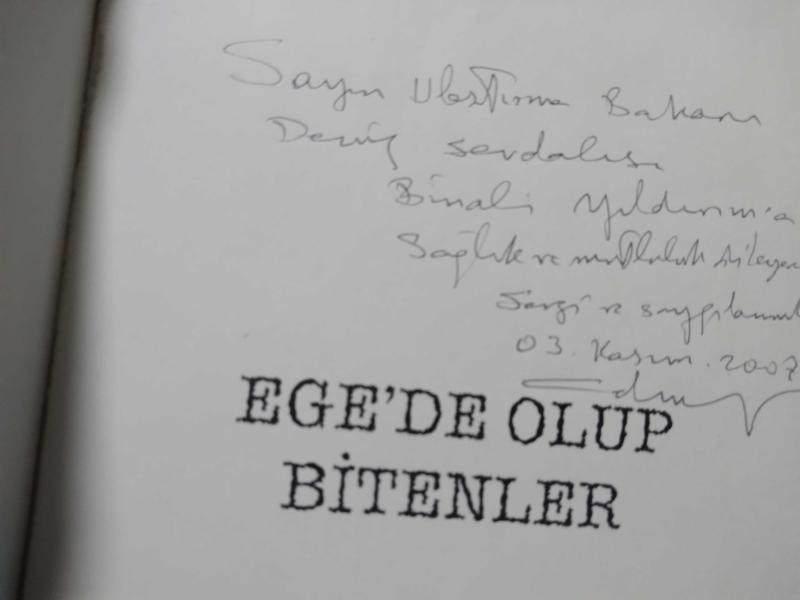 Sayın Ulaştırma Bakanı
Deniz sevdalısı
Binali Yıldırım'a
Sağlık ve mutluluk
Sevgi ve saygılarımla
03. Kasım. 2007
EGE'DE OLUP
BİTENLER